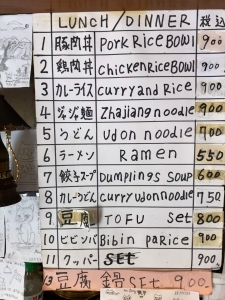 LUNCH/DINNER 税込
1 豚肉丼 Pork Rice BOWl 900
2 鶏肉丼 chicken Rice BOWl 900
3 カレーライス curry and Rice
4 ジャジャ麺 Zhajiang noodle 900
5 うどん udon noodle 700
6 ラーメン Ramen 550
7 餃子スープ Dumplings SOUP 600
8 カレーうどん curry udon noodle 750
9 豆腐 TOFU Set 800
10 ビビンバ Bibin pa Rice 900
11 クッパー SET 900
豆腐 鍋 SEt 900